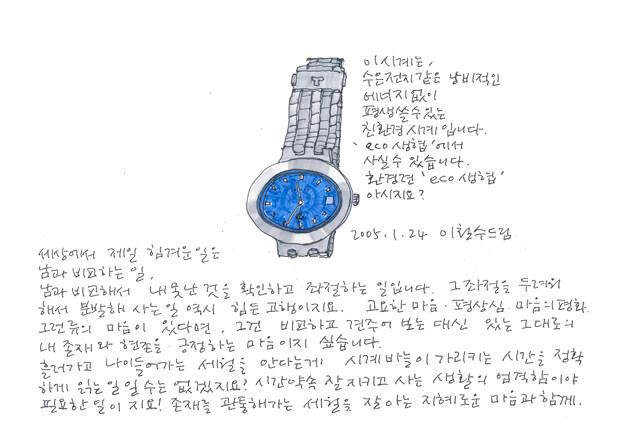 이 시계는,
수은전지 같은 낭비적인
에너지 없이
평생 쓸 수 있는
친환경 시계입니다.
'eco 생협'에서
사실 수 있습니다.
환경련 'eco 생협'
아시지요?
2005.1.24 이철수드림
세상에서 제일 힘겨운 일은
남과 비교하는 일,
남과 비교해서 내 못난 것을 확인하고 좌절하는 일입니다. 그 좌절을 두려워
해서 분발해 사는 일 역시 힘든 고행이지요. 고요한 마음·평상심·마음의 평화.
그런 류의 마음이 있다면, 그건 비교하고 견주어 보는 대신 있는 그대로의
내 존재와 현존을 긍정하는 마음이지 싶습니다.
흘러가고 나이들어가는 세월을 안다는게 시계바늘이 가리키는 시간을 정확
하게 읽는 일일 수는 없겠지요? 시간약속 잘 지키고 사는 생활의 엄격함이야
필요한 일이지요! 존재를 관통해가는 세월을 잘 아는 지혜로운 마음과 함께.